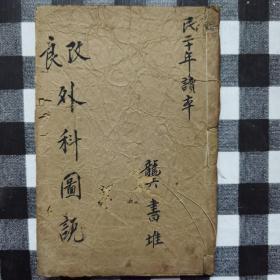 民二十年讀本
龍六書堆
改良
外科圖說